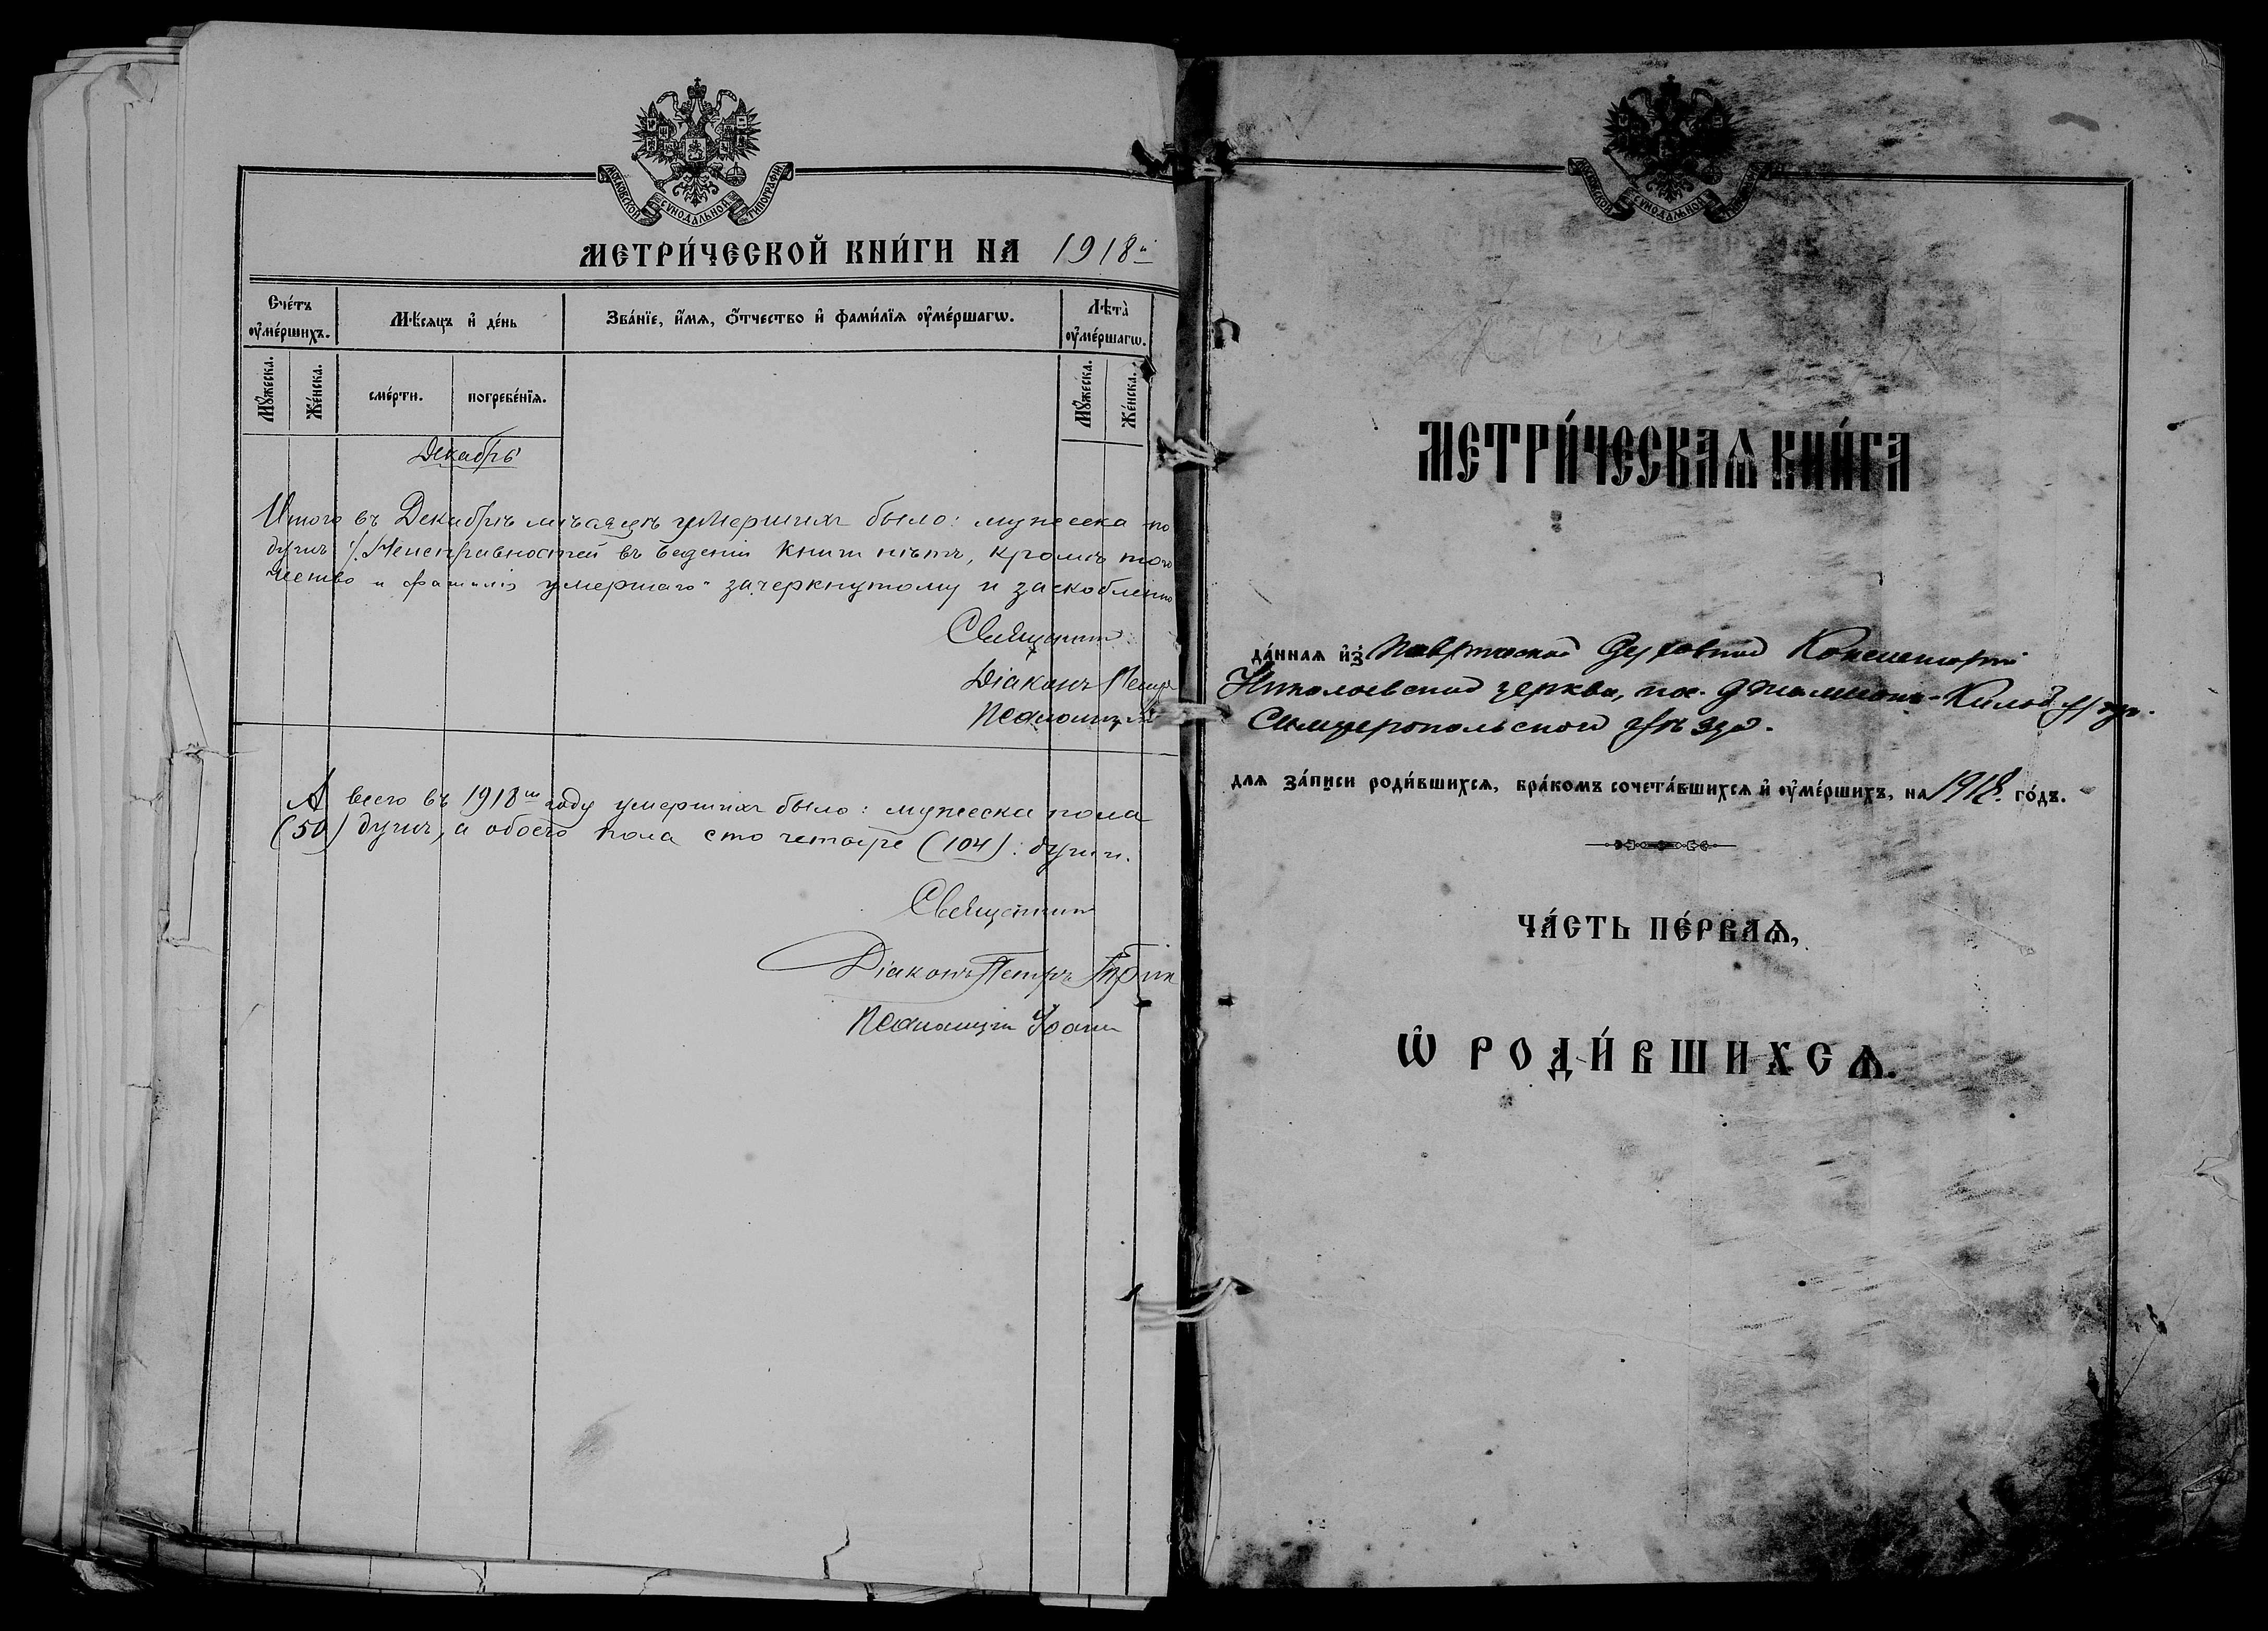 МОСКОВСКОЙ СѴНОДАЛЬНОЙ ТИПОГРАФІИ
МЕТРИ́ЧЕСКОЙ КНИ́ГИ НА 1918й
Сче́тъ ᲂу҆ме́ршихъ.
Мѣ́сяцъ и҆ де́нь
Зва́нїе, и҆́мѧ, ѻ҆́тчество и҆ фами́лїѧ ᲂу҆ме́ршагѡ.
Лѣ̀та ᲂу҆ме́ршагѡ.
Мꙋ́жеска.
Же́нска.
сме́рти.
погребе́нїѧ.
Мꙋ́жеска.
Же́нска.
Декабрь
Итого въ Декабрѣ мѣсяцѣ умершихъ было: мужеска по
душъ Неисправностей въ веденіи книги нѣтъ, кромѣ того
чество и фамилія умершаго" зачеркнутому и
Священник
Діаконъ Петр
Псаломщик
А всего въ 1918м году умершихъ было: мужеска пола
(50) душъ, а обоего пола сто четыре (104) душ.
Священник
Діаконъ Петръ
Псаломщик Іоанн
МОСКОВСКОЙ СѴНОДАЛЬНОЙ ТИПОГРАФІИ
МЕТРИ́ЧЕСКАѦ КНИ́ГА
да́ннаѧ и҆з̾ Таврической Духовной Консисторіи
Николаевской церкви, пос.
Симферопольского уѣзда.
длѧ за́писи роди́вшихсѧ, бра́комъ сочета́вшихсѧ и҆ ᲂу҆ме́ршихъ, на 1918. го́дъ.
ЧА́СТЬ ПЕ́РВАѦ,
Ѡ҆ РОДИ́ВШИХСѦ.